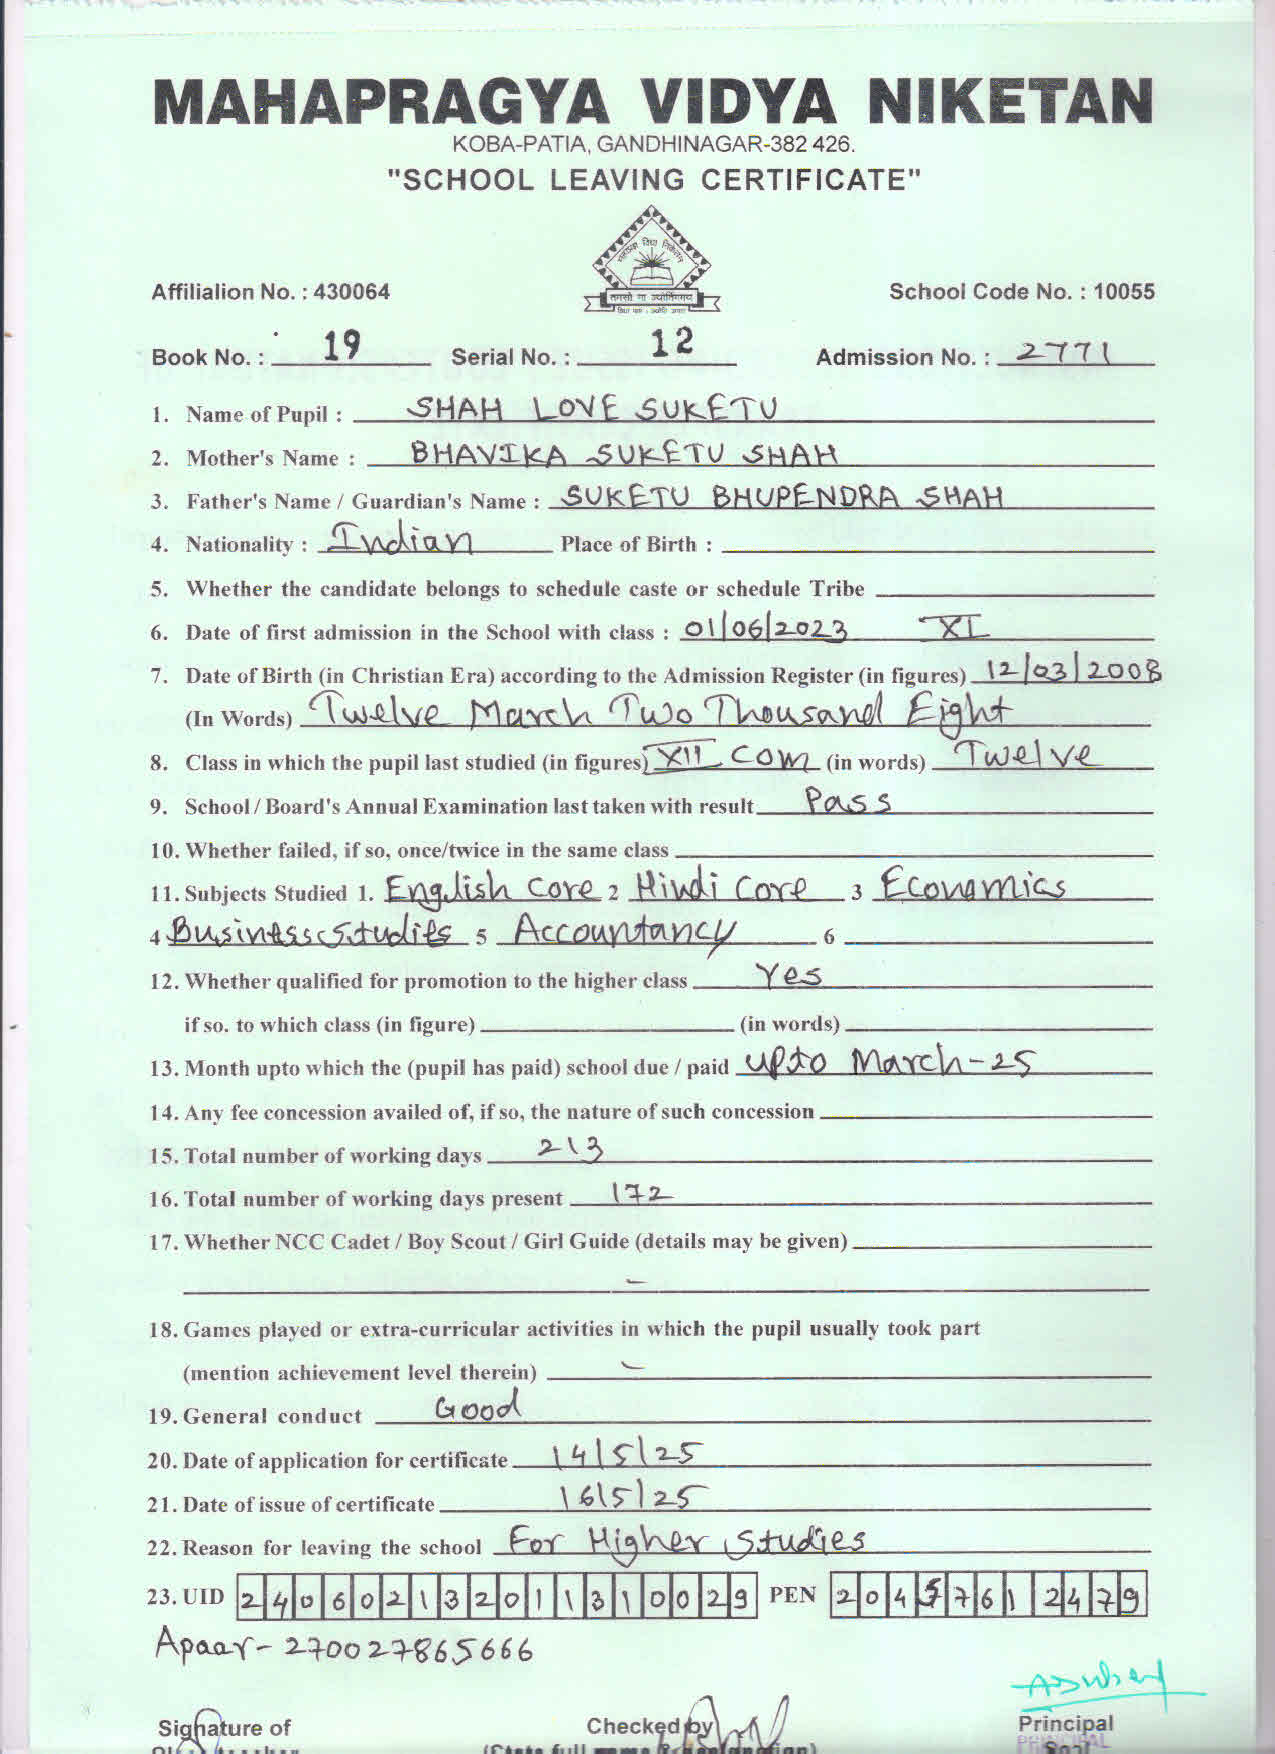 MAHAPRAGYA VIDYA NIKETAN
KOBA-PATIA, GANDHINAGAR-382 426.
"SCHOOL LEAVING CERTIFICATE"
महाप्रज्ञ विद्या निकेतन
तमसो मा ज्योतिर्गमय
Affilialion No. : 430064 School Code No. : 10055
Book No. : 19 Serial No. : 12 Admission No. : 2771
1. Name of Pupil : SHAH LOVE SUKETU
2. Mother's Name : BHAVIKA SUKETU SHAH
3. Father's Name / Guardian's Name : SUKETU BHUPENDRA SHAH
4. Nationality : Indian Place of Birth :
5. Whether the candidate belongs to schedule caste or schedule Tribe
6. Date of first admission in the School with class : 01/06/2023 XI
7. Date of Birth (in Christian Era) according to the Admission Register (in figures) 12/03/2008
(In Words) Twelve March Two Thousand Eight
8. Class in which the pupil last studied (in figures) XII COM (in words) Twelve
9. School / Board's Annual Examination last taken with result Pass
10. Whether failed, if so, once/twice in the same class
11. Subjects Studied 1. English Core 2 Hindi Core 3 Economics
4 Business Studies 5 Accountancy 6
12. Whether qualified for promotion to the higher class Yes
if so. to which class (in figure) (in words)
13. Month upto which the (pupil has paid) school due / paid upto March-25
14. Any fee concession availed of, if so, the nature of such concession
15. Total number of working days 213
16. Total number of working days present 172
17. Whether NCC Cadet / Boy Scout / Girl Guide (details may be given)
–
18. Games played or extra-curricular activities in which the pupil usually took part
(mention achievement level therein) –
19. General conduct Good
20. Date of application for certificate 14/5/25
21. Date of issue of certificate 16/5/25
22. Reason for leaving the school For Higher Studies
23. UID 240602132011310029 PEN 20457612479
Apaar- 270027865666
Signature of Checked by Principal
(State full name & designation) PRINCIPAL Seal